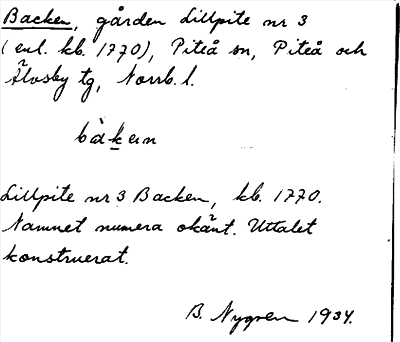 Backen, gården Lillpite nr 3
(enl. kb. 1770), Piteå sn, Piteå och
Älvsby tg, Norrb. l.
Lillpite nr 3 Backen, kb. 1770.
Namnet numera okänt. Uttalet
konstruerat.
B. Nygren 1934.